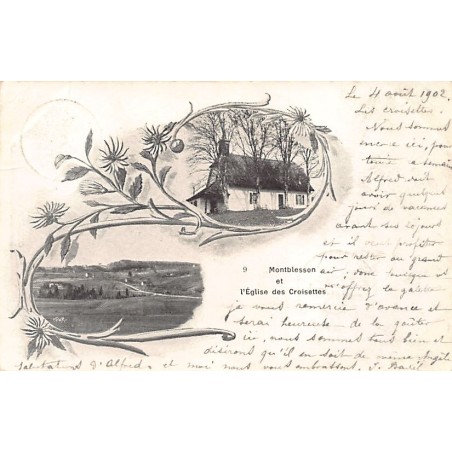 Le 4 août 1902.
Les croisettes.
Nous sommes
encore ici, pour
toute la semaine
Alfred doit
avoir quelques
jours de vacances
avant son
et il veut profiter
pour rester au grand
air;
9 Montblesson
et
l'Église des Croisettes
offrez la
je vous remercie d'avance et
serai heureuse de la goûter
ici, nous sommes tous bien et
désirons qu'il en soit de même
Salutations d'Alfred, et moi nous vous embrassons,